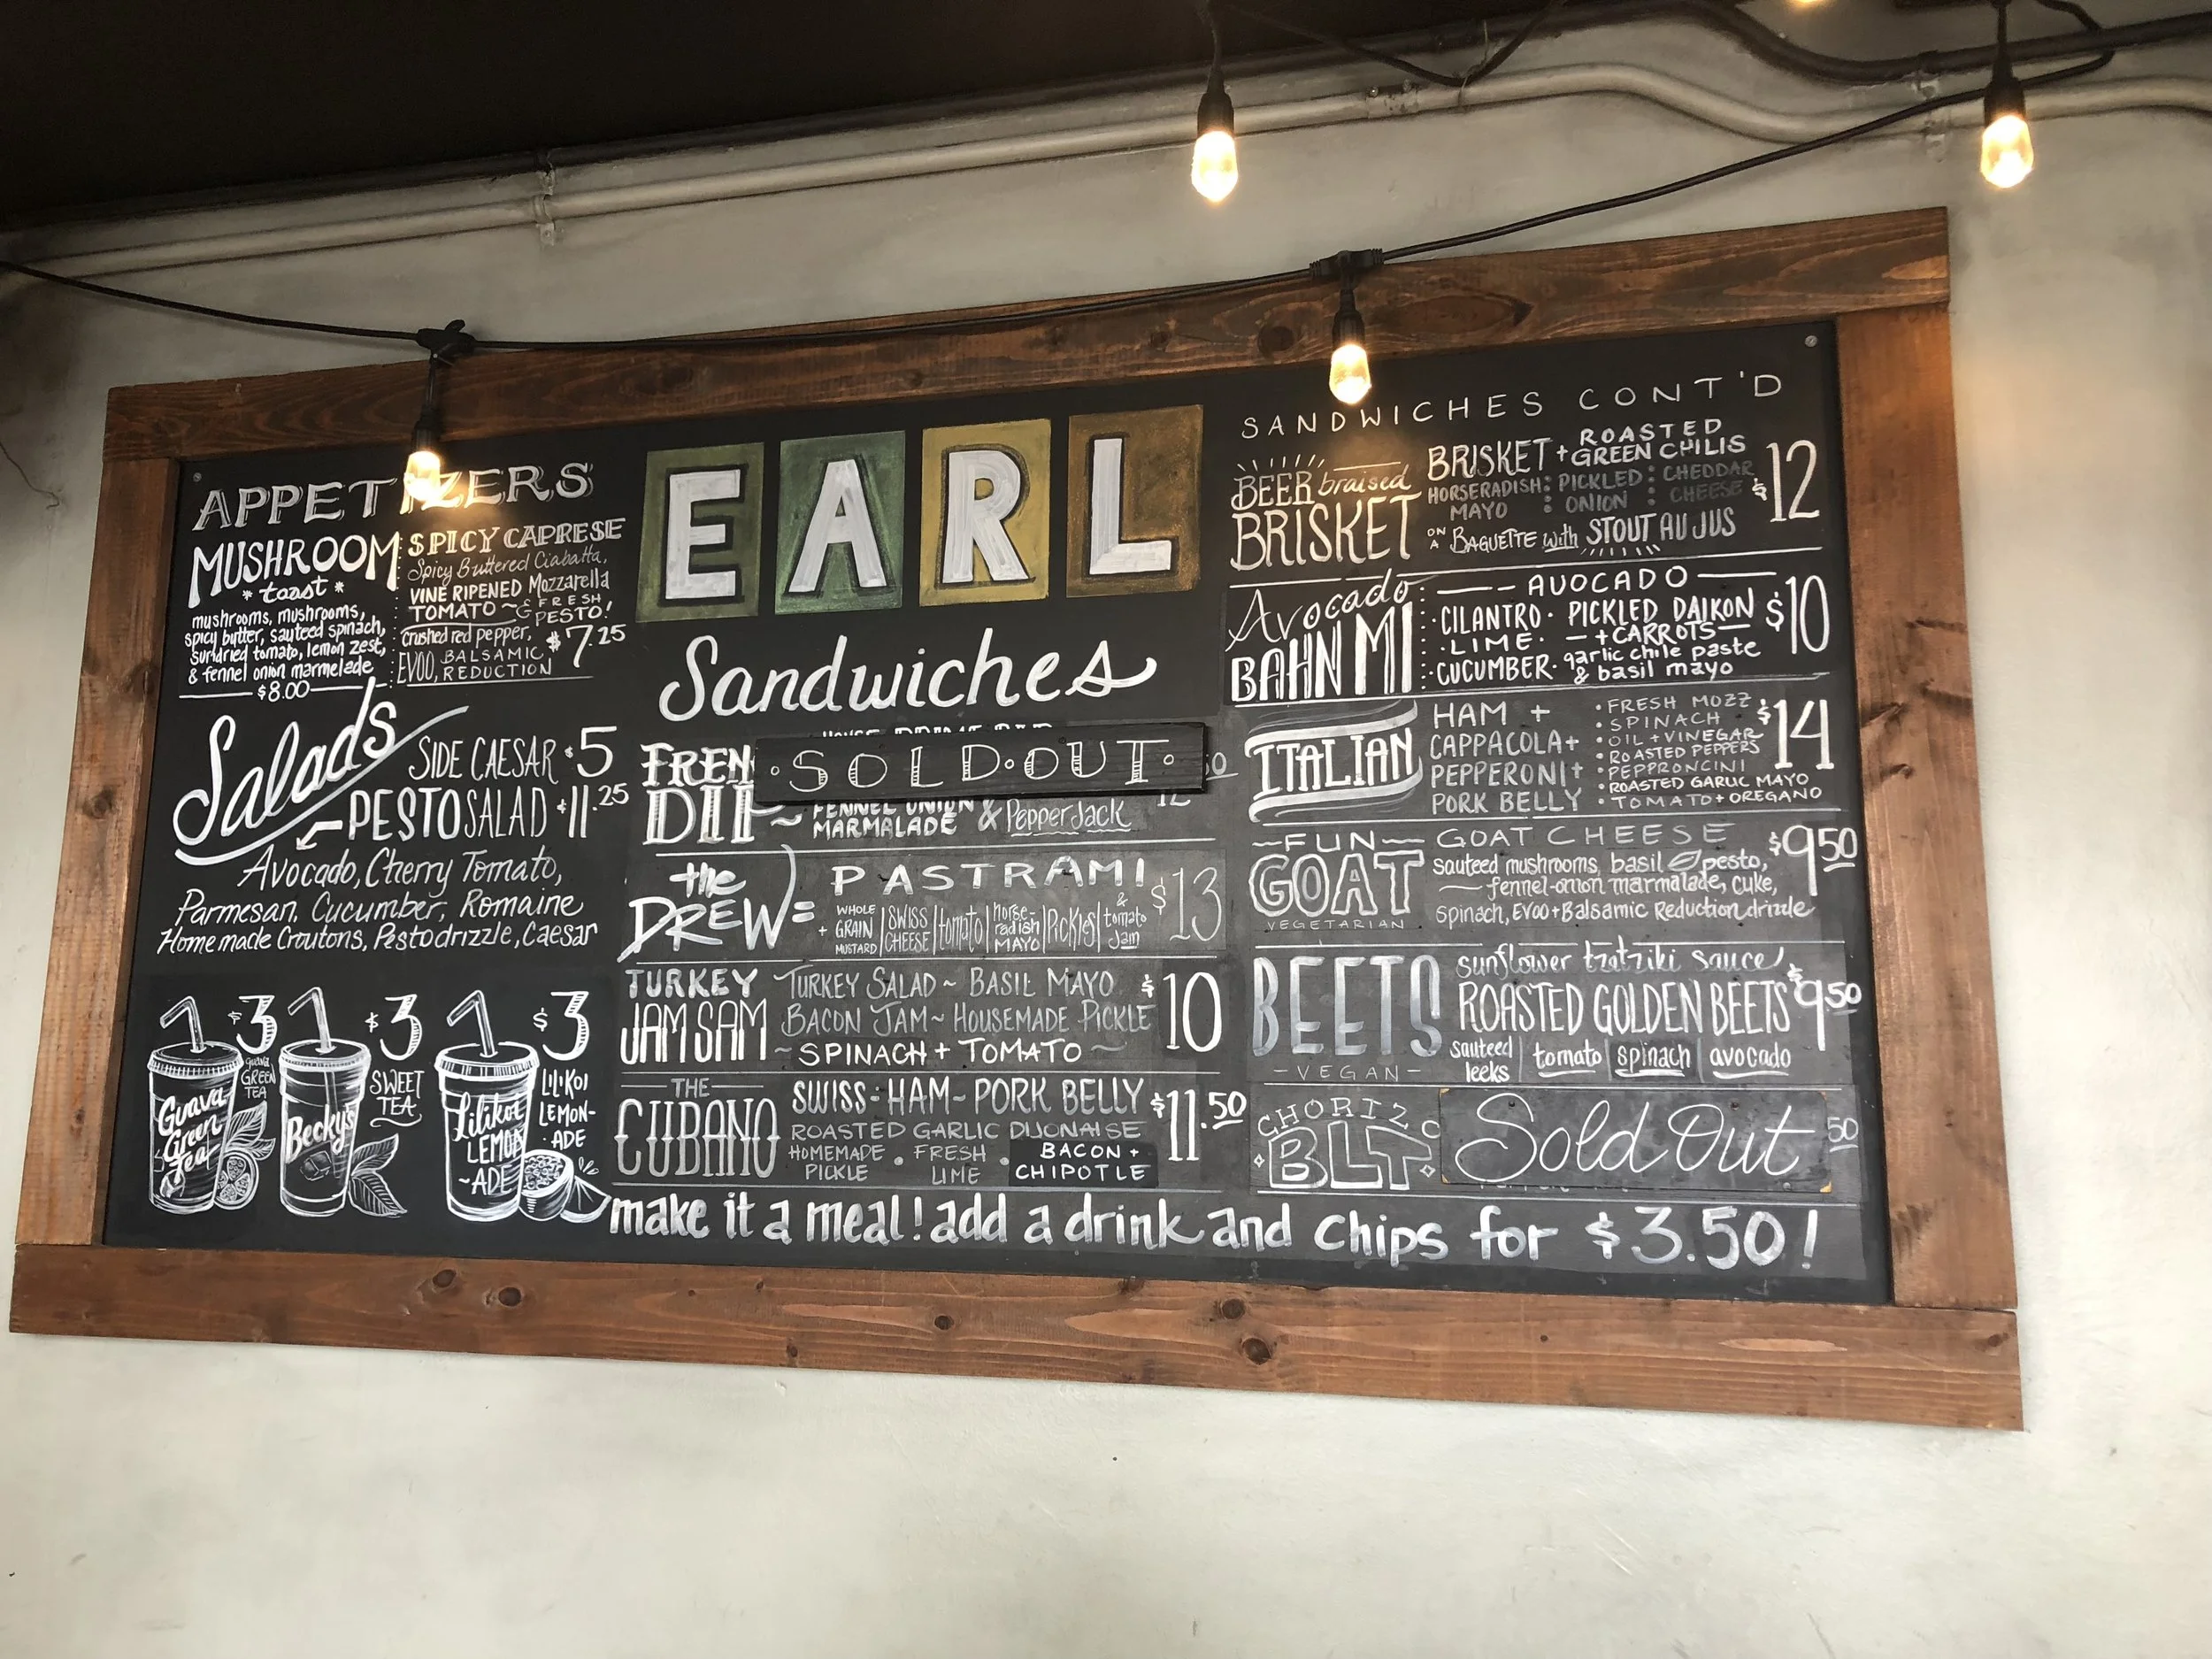 APPETIZERS
MUSHROOM
* toast *
mushrooms, mushrooms,
spicy butter, sauteed spinach,
sundried tomato, lemon zest,
& fennel onion marmelade
$8.00
SPICY CAPRESE
Spicy Buttered Ciabatta,
VINE RIPENED Mozzarella
TOMATO ~ & FRESH PESTO!
crushed red pepper,
EVOO, BALSAMIC REDUCTION
$7.25
Salads
SIDE CAESAR $5
PESTO SALAD $11.25
Avocado, Cherry Tomato,
Parmesan, Cucumber, Romaine
Homemade Croutons, Pesto drizzle, Caesar
$3
GUAVA GREEN TEA
Guava Green Tea
$3
SWEET TEA
Becky's
$3
LILIKOI LEMON-ADE
Lilikoi LEMON~ADE
EARL
Sandwiches
FREN
DIP
SOLD OUT
FENNEL ONION
MARMALADE & Pepper Jack
the DREW =
PASTRAMI $13
+ WHOLE GRAIN MUSTARD | SWISS CHEESE | tomato | horse-radish MAYO | Pickles | & tomato Jam
TURKEY
JAM SAM
TURKEY SALAD ~ BASIL MAYO $10
BACON JAM ~ HOUSEMADE PICKLE
~ SPINACH + TOMATO ~
THE
CUBANO
SWISS - HAM - PORK BELLY $11.50
ROASTED GARLIC DIJONAISE
HOMEMADE PICKLE • FRESH LIME • BACON + CHIPOTLE
SANDWICHES CONT'D
BEER braised
BRISKET
BRISKET + ROASTED GREEN CHILIS $12
HORSERADISH MAYO : PICKLED ONION : CHEDDAR CHEESE
ON A BAGUETTE with STOUT AU JUS
Avocado
BAHN MI
AVOCADO $10
• CILANTRO • PICKLED DAIKON
• LIME • — + CARROTS —
• CUCUMBER • garlic chile paste
& basil mayo
ITALIAN
HAM +
CAPPACOLA +
PEPPERONI +
PORK BELLY
• FRESH MOZZ $14
• SPINACH
• OIL + VINEGAR
• ROASTED PEPPERS
• PEPPRONCINI
• ROASTED GARLIC MAYO
• TOMATO + OREGANO
FUN
GOAT
VEGETARIAN
GOAT CHEESE $9.50
sauteed mushrooms, basil pesto,
fennel-onion marmalade, cuke,
spinach, EVOO + Balsamic Reduction drizzle
BEETS
- VEGAN -
sunflower tzatziki sauce $9.50
ROASTED GOLDEN BEETS
sauteed leeks | tomato | spinach | avocado
CHORIZO
BLT
Sold Out
50
make it a meal! add a drink and chips for $3.50!